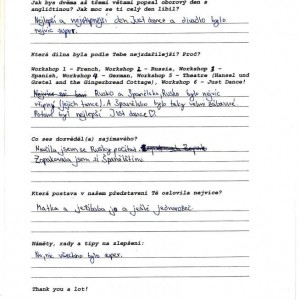 Jak bys dvěma až třemi větami popsal oborový den s
angličtinou? Jak moc se ti celý den líbil?
Nejlepší a nejúžasnější den. Just dance a divadlo bylo
nejvíc super.
Která dílna byla podle Tebe nejzdařilejší? Proč?
Workshop 1 - French, Workshop 2 - Russia, Workshop 3 -
Spanish, Workshop 4 - German, Workshop 5 - Theatre (Hansel und
Gretel and the Gingerbread Cottage), Workshop 6 - Just Dance!
Rusko a Španělsko, Rusko bylo nejvíc
vtipný (jejich tance). A Španělsko bylo taky zábavné
Potom byl nejlepší Just Dance
Co ses dozvěděl(a) zajímavého?
Naučila jsem se Rusky počítat
Zopakovala jsem si Španělštinu.
Která postava v našem představení Tě oslovila nejvíce?
Matka a ježibaba jo a ještě jednorožec.
Náměty, rady a tipy na zlepšení:
Ne, nic všechno bylo super.
Thank you a lot!